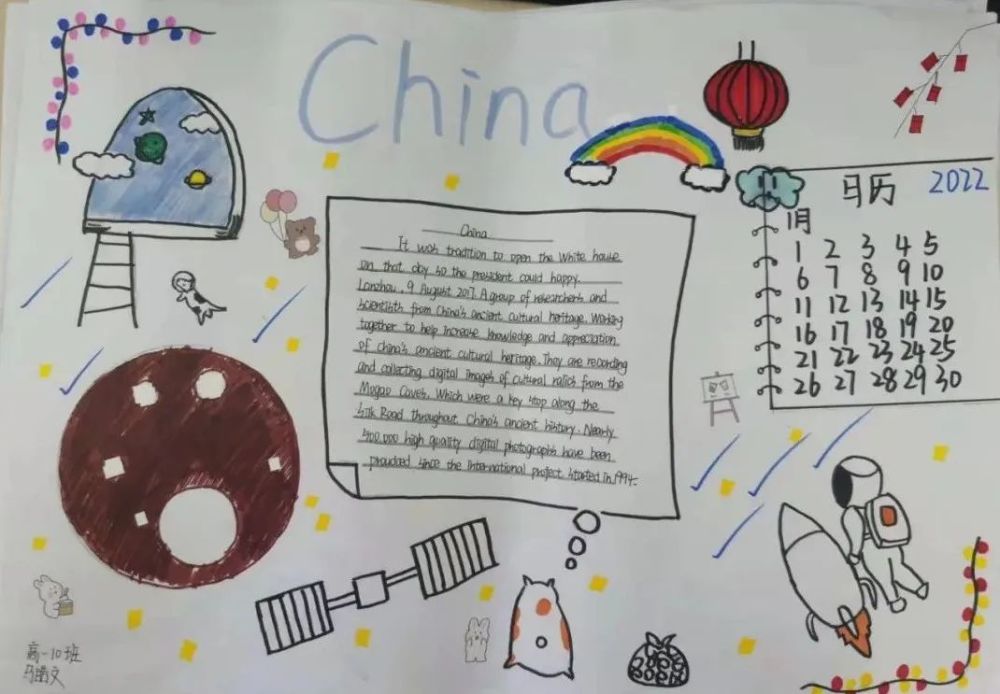 China
日历 2022
1月
1 2 3 4 5
6 7 8 9 10
11 12 13 14 15
16 17 18 19 20
21 22 23 24 25
26 27 28 29 30
China
It was tradition to open the White house
on that day so the president could happy.
Lanzhou, 9 August 2017. A group of researchers and
scientists from China's ancient cultural heritage. Working
together to help increase knowledge and appreciation
of China's ancient cultural heritage. They are recording
and collecting digital images of cultural ralics from the
Mogao Caves, Which were a key stop along the
Silk Road throughout China's ancient history. Nearly
500,000 high quality digital photographs have been
proudced since the international project started in 1994.
高一10班
马文